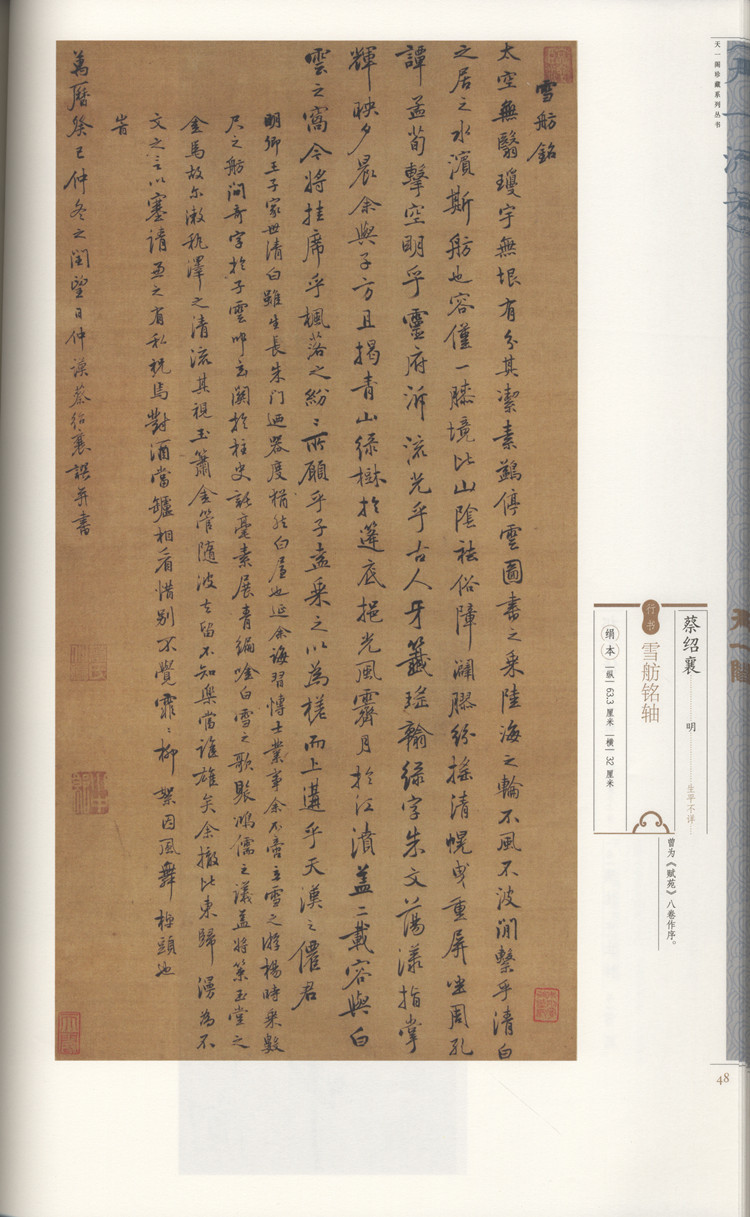 雪舫銘
太空無翳瓊宇無垠有分其潔素鷁停雲圖書之乘陸海之輪不風不波閒繫乎清白
之居之水濱斯舫也容僅一膝境比山陰祛俗障瀾膠紛搖清幌曳重屏坐周孔
譚孟荀擊空明乎靈府泝流光乎古人牙籤瑤翰綠字朱文蕩漾指掌
輝映夕晨余與子方且揭青山綠樹於蓬底挹光風霽月於江濆蓋二載容與白
雲之窩今將挂席乎楓落之紛〻所願乎子盍乘之以為槎而上遘乎天漢之僊君
明卿王子家世清白雖生長朱门迺器度楷然白屋也延余誨習博士業事余不啻立雪之游楊時乘數
尺之舫问奇字於子雲叩玄闕於柱史託毫素展青緗唫白雪之歌聚鴻儒之議蓋將策玉堂之
金馬故尔漱執澤之清流其視玉簫金管隨波去留不知樂當誰雄矣余撤比東歸 漫為不
文之言以塞請亟之有私祝焉對酒當罏相看惜别不覺霏〻柳絮因風舞檣頭也
旹
萬曆癸巳仲冬之閏望日仲謨蔡紹襄譔并書
天一阁珍藏系列丛书
天一流芳
天一阁
蔡绍襄
明
生平不详
曾为《赋苑》八卷作序。
行书
雪舫铭轴
绢本 纵 63.3 厘米 横 32 厘米
48